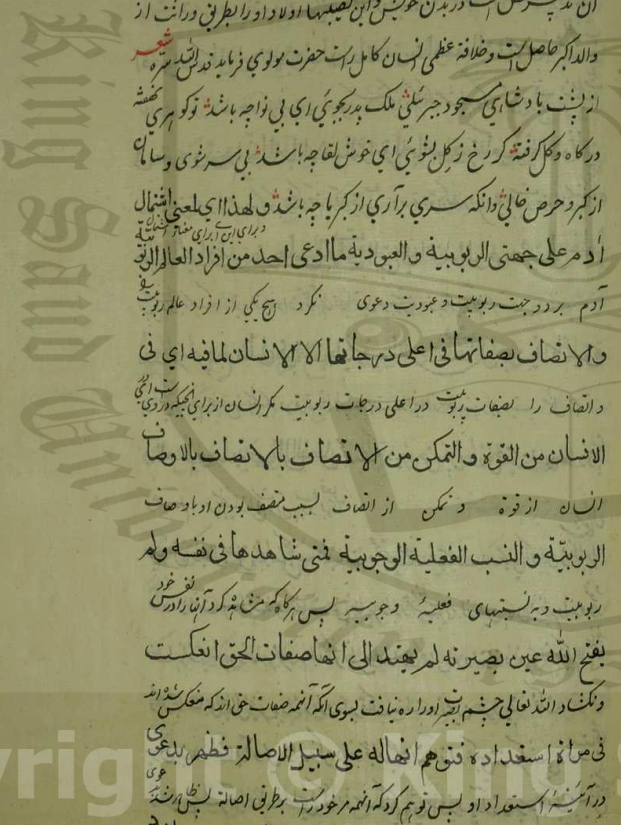 والد اکبر حاصل است و خلافة عظمی انسان کامل راست حضرت مولوی فرماید قدس الله سره
شعر
از پشت بادشاهی مسجود جبرئیلی ملک پدر بجویی ای بی نواچه باشد
در کاه و کل گرفته گر رخ ز کل بشویی ای خوش لقا چه باشد بی سر شوی و سامان
از کبر و حرص خالی وانکه سری برآری از کبریا چه باشد ولهذا ای لمعنی اشتمال
آدم علی جهتی الربوبیة والعبودیة ما ادعی احد من افراد العالم الربوبیة
آدم بر دو جهت ربوبیت و عبودیت دعوی نکرد هیچ یکی از افراد عالم ربوبیت
والاتصاف بصفاتها فی اعلی درجاتها الا الانسان لما فیه ای فی
و اتصاف را بصفات ربوبیت در اعلی درجات ربوبیت مکر انسان از برای انچیکه در وی است
الانسان من القوة والتمکن من الاتصاف بالاتصاف بالاوصاف
انسان از قوة و تمکن از اتصاف بسبب متصف بودن او باوصاف
الربوبیّة والنسب الفعلیة الوجوبیة فمتی شاهدها فی نفسه ولم
ربوبیت و به نسبتهای فعلیهٔ وجوبیه پس هرکاه که مشاهده کرد آنها را در نفس خود
یفتح الله عین بصیرته لم یهتد الی انها صفات الحق انعکست
ونکشاد الله تعالی چشم بصیرت او را ره نیافت بسوی آنکه آنهمه صفات حق اند که منعکس شده اند
فی مراة استعداده فتوهم انها له علی سبیل الاصالة فظهر بدعوی
در آئینهٔ استعداد او پس توهم کرد که آنهمه مر خود راست بر طریق اصالة پس ظاهر شد
King Saud Univ
yright © King S